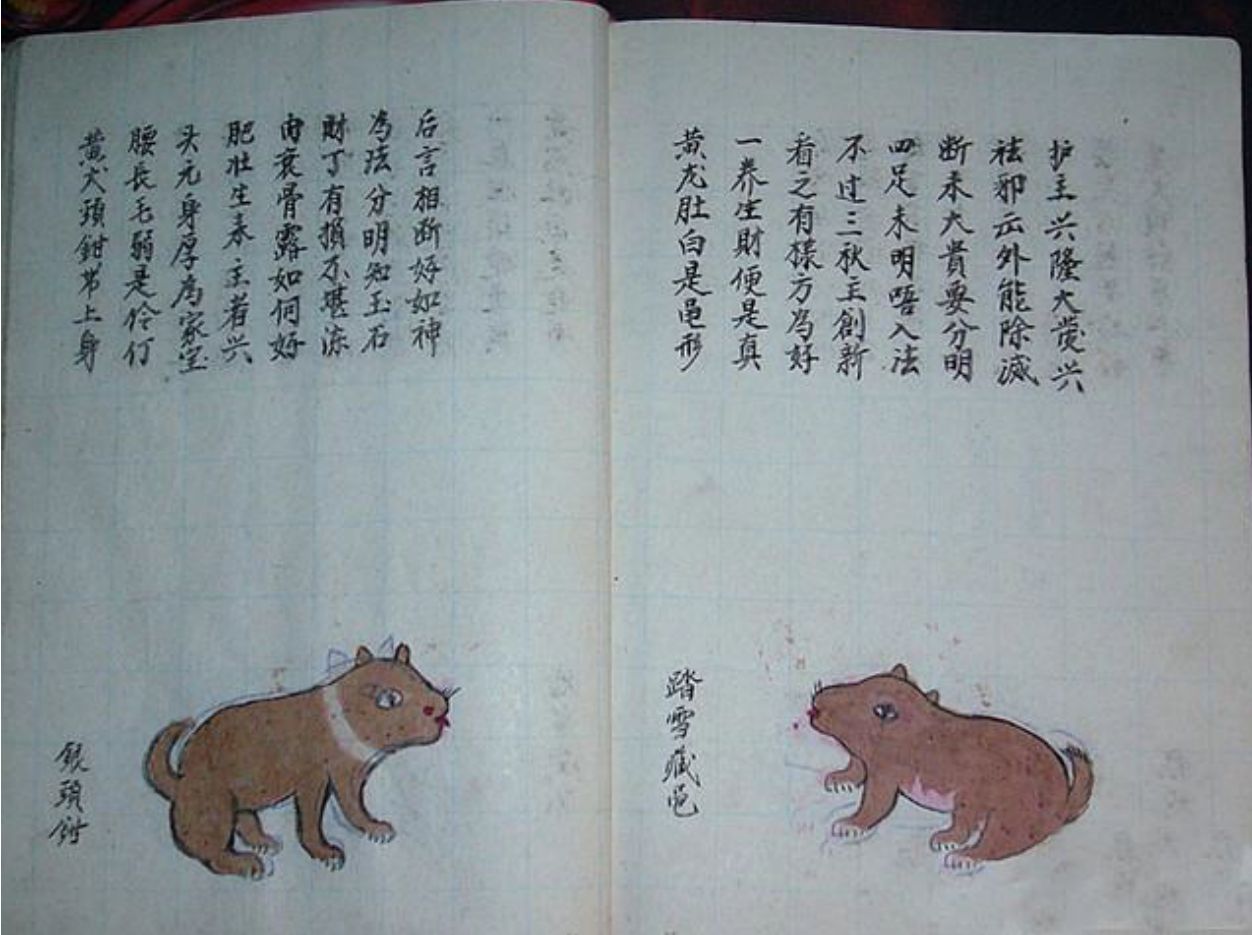 黄犬頭鉗帯上身
腰長毛弱是伶仃
头元身厚為家宝
肥壮生来主者兴
肉衰骨露如何好
財丁有損不堪
為法分明知玉石
后言相断好如神
銀頭鉗
黄龙肚白是黾形
一养生財便是真
看之有樣方為好
不过三秋主創新
四足未明唔入法
断来大貴要分明
祛邪示外能除滅
护主兴隆大发兴
踏雪藏黾